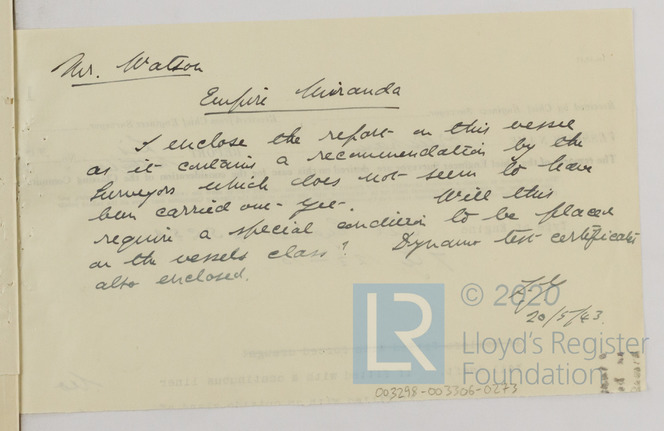 Mr. Watson
Empire Miranda
I enclose the report on this vessel
as it contains a recommendation by the
Surveyors which does not seem to have
been carried out yet. Will this
require a special condition to be placed
on the vessels class? Dynamo test certificate
also enclosed.
20/5/43
LR © 2020
Lloyd's Register
Foundation
003298-003306-0273